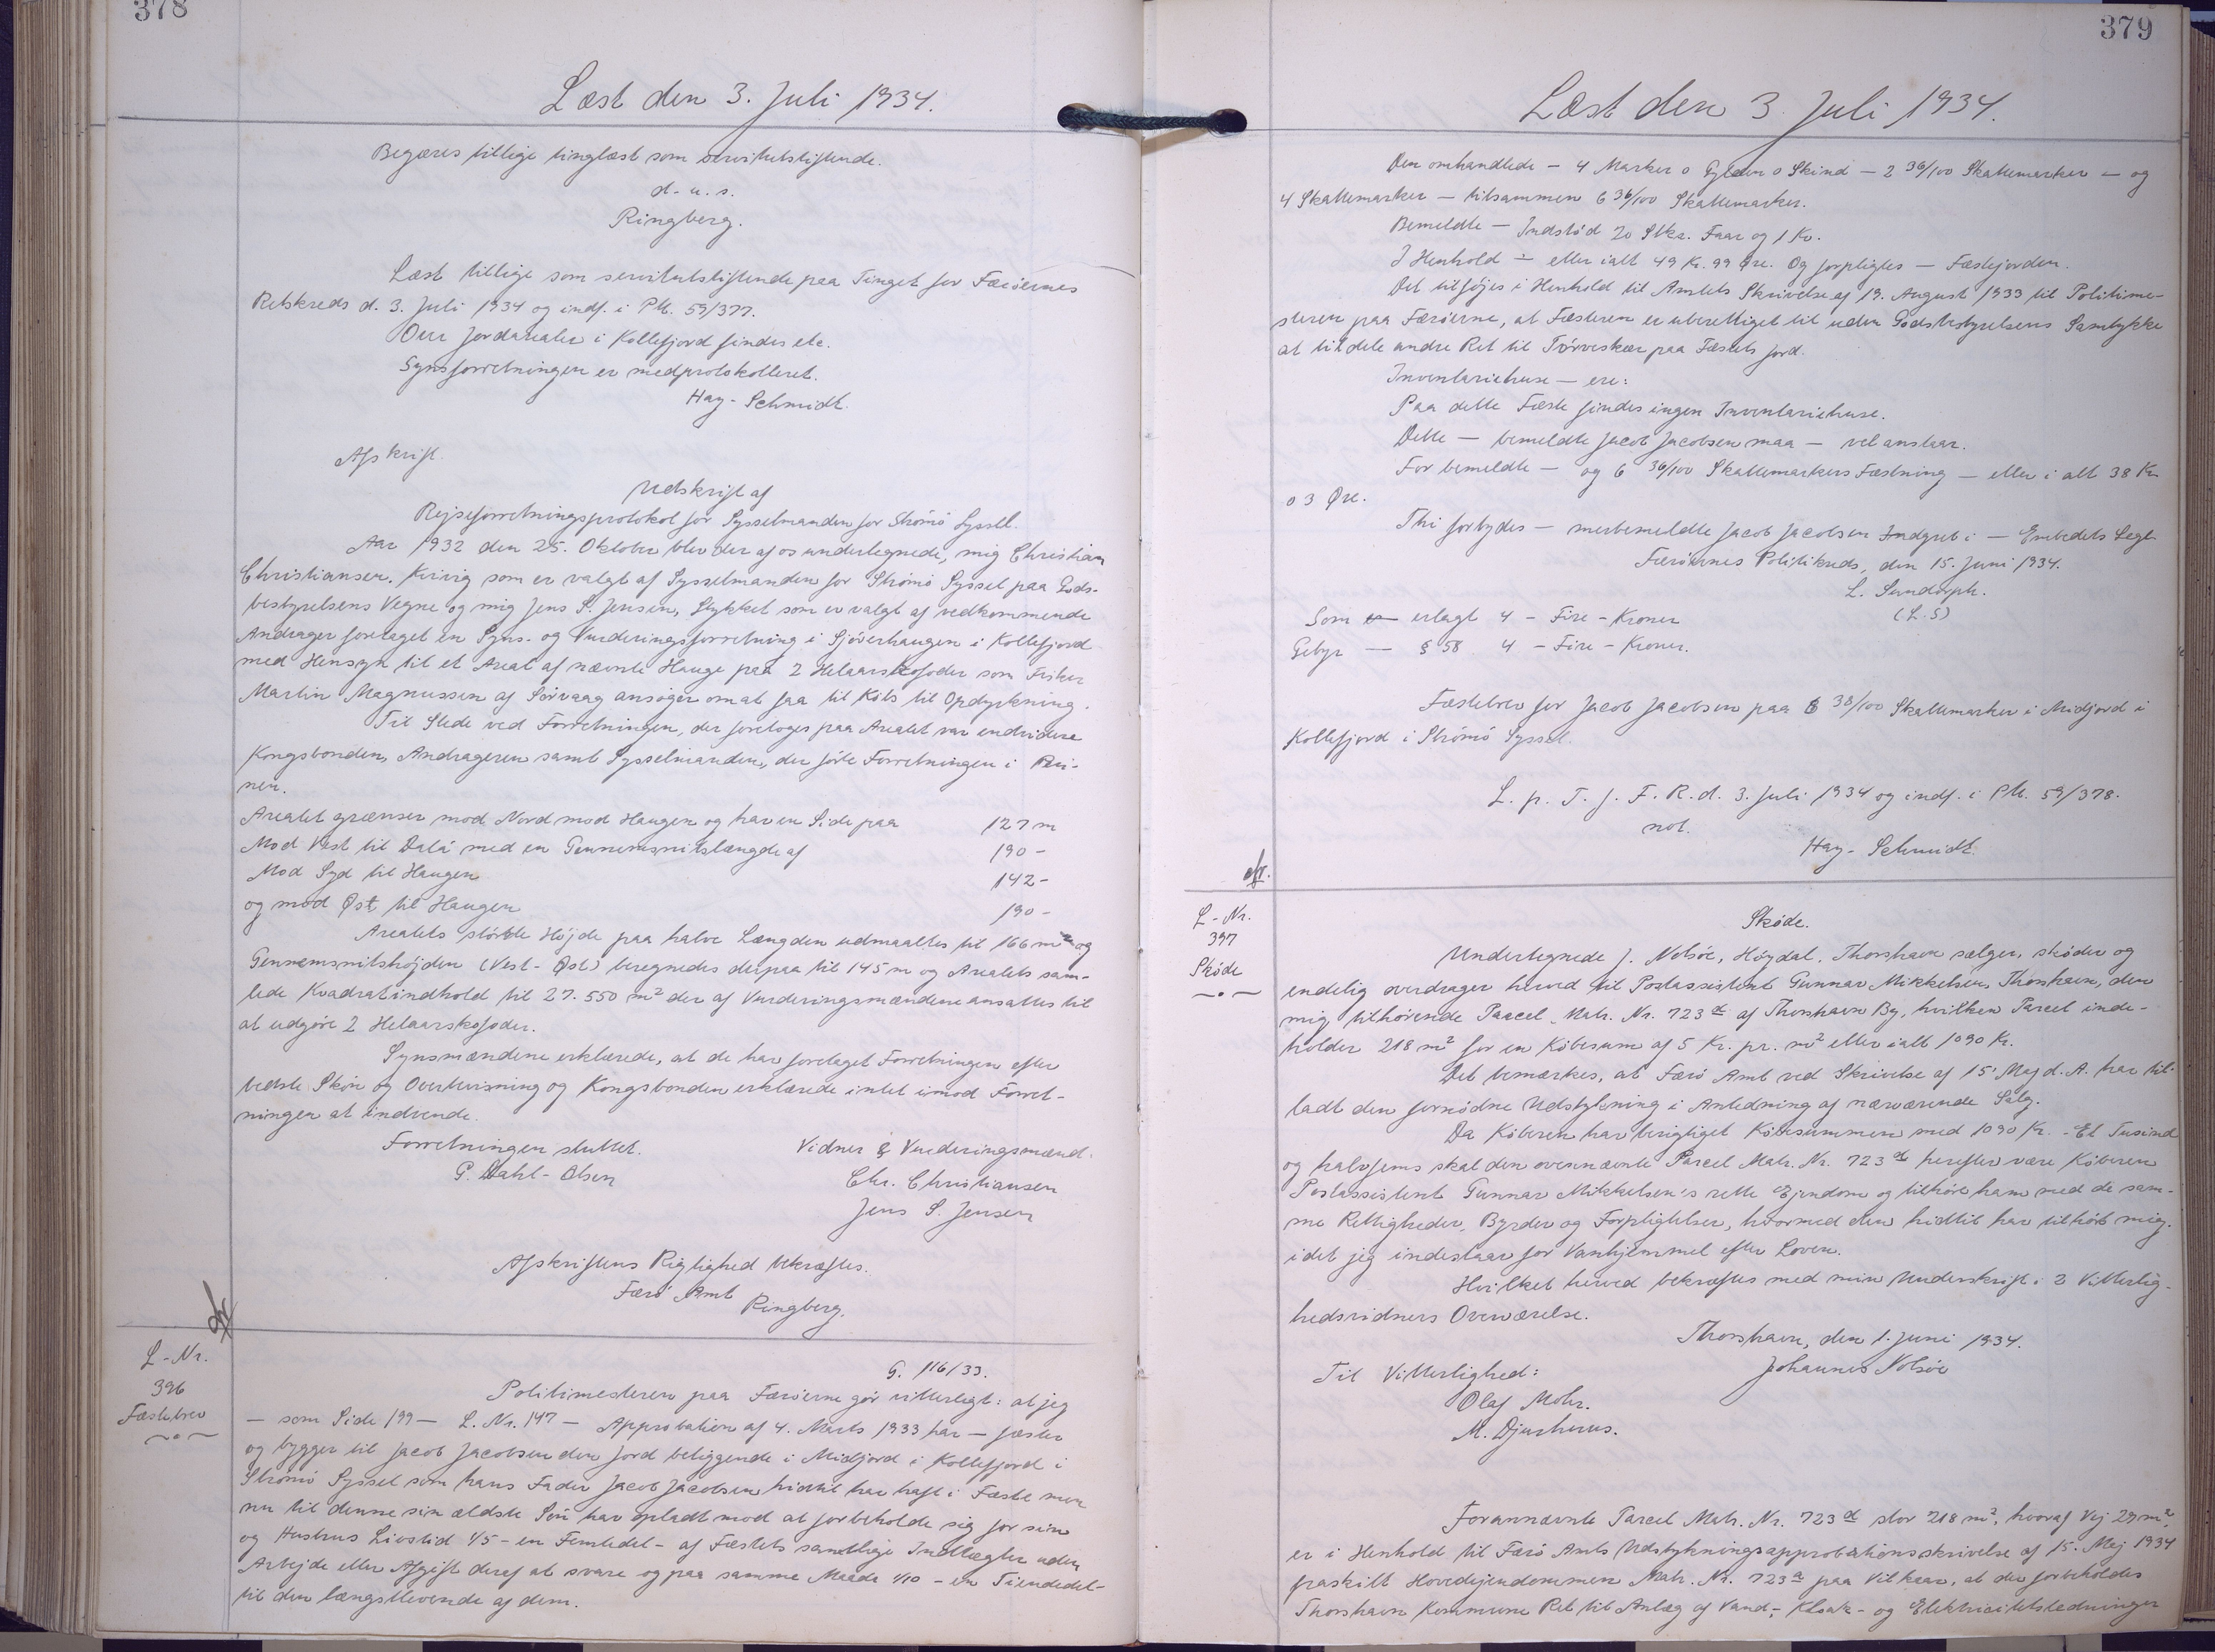 378
Læst den 3. Juli 1934.
Begæres tillige tinglæst som servitutstiftende.
d. u. s.
Ringberg.
Læst tillige som servitutstiftende paa Tinget for Færöernes
Retskreds d. 3. Juli 1934 og indf. i Ptk. 59/377.
Over Jordarealer i Kollefjord findes etc.
Synsforretningen er medprotokolleret.
Hay-Schmidt.
Afskrift.
Udskrift af
Rejseforretningsprotokol for Sysselmanden for Strömö Syssel.
Aar 1932 den 25. Oktober blev der af os undertegnede, mig Christian
Christiansen, Kvivig som er valgt af Sysselmanden for Strömö Syssel paa Gods-
bestyrelsens Vegne og mig Jens S. Jensen, Stykket som er valgt af vedkommende
Andrager foretaget en Syns- og Vurderingsforretning i Sjóverhaugen i Kollefjord
med Hensyn til et Areal af nævnte Hauge paa 2 Helaarskofoder som Fisker
Martin Magnussen af Sörvaag ansöger om at faa til Köbs til Opdyrkning.
Til Stede ved Forretningen, der foretoges paa Arealet var endvidere
Kongsbonden, Andrageren samt Sysselmanden, der förte Forretningen i Pen-
nen.
Arealet grænser mod Nord mod Haugen og har en Side paa 127 m
Mod Vest til Dalá med en Gennemsnitslængde af 190 -
Mod Syd til Haugen 142 -
og mod Øst til Haugen 190 -
Arealets störste Höjde paa halve Længden udmaaltes til 166 m og
Gennemsnitshöjden (Vest-Øst) beregnedes derpaa til 145 m og Arealets sam-
lede Kvadratindhold til 27.550 m² der af Vurderingsmændene ansattes til
at udgöre 2 Helaarskofoder.
Synsmændene erklærede, at de har foretaget Forretningen efter
bedste Skön og Overbevisning og Kongsbonden erklærede intet imod Forret-
ningen at indvende.
Forretningen sluttet. Vidner & Vurderingsmænd.
G. Dahl-Olsen Chr. Christiansen
Jens S. Jensen
Afskriftens Rigtighed bekræftes.
Færö Amt
Ringberg.
L-Nr.
396
Fæstebrev
G. 116/33.
Politimesteren paa Færöerne gör vitterligt: at jeg
— som Side 199 — L. Nr. 147 — Approbation af 4. Marts 1933 har — fæster
og bygger til Jacob Jacobsen den Jord beliggende i Midjord i Kollefjord i
Strömö Syssel som hans Fader Jacob Jacobsen hidtil har haft i Fæste men
nu til denne sin ældste Sön har opladt mod at forbeholde sig for sin
og Hustrus Livstid 1/5 - en Femtedel - af Fæstets samtlige Indtægter uden
Arbejde eller Afgift deraf at svare og paa samme Maade 1/10 - en Tiendedel -
til den længstlevende af dem.
379
Læst den 3. Juli 1934.
Den omhandlede — 4 Marker 0 Gylden 0 Skind — 2 36/100 Skattemarker — og
4 Skattemarker — tilsammen 6 36/100 Skattemarker.
Bemeldte — Indstöd 20 Stkr. Faar og 1 Ko.
I Henhold — eller ialt 49 Kr. 99 Øre. Og forpligtes — Fæstejorden.
Det tilföjes i Henhold til Amtets Skrivelse af 19. August 1933 til Politime-
steren paa Færöerne, at Fæsteren er uberettiget til uden Godsbestyrelsens Samtykke
at tildele andre Ret til Törveskær paa Fæstets Jord.
Inventariehuse — ere:
Paa dette Fæste findes ingen Inventariehuse.
Dette — bemeldte Jacob Jacobsen maa — vel anstaar.
For bemeldte — og 6 36/100 Skattemarkers Fæstning — eller i alt 38 Kr.
03 Øre.
Thi forbydes — merbemeldte Jacob Jacobsen Indgreb i — Embedets Segl.
Færöernes Politikreds, den 15. Juni 1934.
L. Sundorph.
Som erlagt 4 - Fire - Kroner (L.S)
Gebyr — § 58 4 - Fire - Kroner.
Fæstebrev for Jacob Jacobsen paa 6 38/100 Skattemarker i Midjord i
Kollefjord i Strömö Syssel.
L. p. T. f. F. R. d. 3. Juli 1934 og indf. i Ptk. 59/378.
not.
Hay-Schmidt.
L-Nr.
397
Sköde
Sköde.
Undertegnede J. Nolsöe, Höydal, Thorshavn sælger, sköder og
endelig overdrager herved til Postassistent Gunnar Mikkelsen, Thorshavn, den
mig tilhörende Parcel, Matr. Nr. 723 d af Thorshavn By, hvilken Parcel inde-
holder 218 m² for en Köbesum af 5 Kr. pr. m² eller ialt 1090 Kr.
Det bemærkes, at Færö Amt ved Skrivelse af 15' Maj d. A. har til-
ladt den fornödne Udstykning i Anledning af nærværende Salg.
Da Köberen har berigtiget Köbesummen med 1090 Kr. - Et Tusind
og halvfems skal den ovennævnte Parcel Matr. Nr. 723 d herefter være Köberen
Postassistent Gunnar Mikkelsen's rette Ejendom og tilhöre ham med de sam-
me Rettigheder, Byrder og Forpligtelser, hvormed den hidtil har tilhört mig,
idet jeg indestaar for Vanhjemmel efter Loven.
Hvilket herved bekræftes med min Underskrift i 2 Vitterlig-
hedsvidners Overværelse.
Thorshavn, den 1. Juni 1934.
Til Vitterlighed: Johannes Nolsöe
Olaf Mohr.
M. Djurhuus.
Forannævnte Parcel Matr. Nr. 723 d stor 218 m², hvoraf Vej 29 m²,
er i Henhold til Færö Amts Udstykningsapprobationsskrivelse af 15. Maj 1934
fraskilt Hovedejendommen Matr. Nr. 723 a paa Vilkaar, at der forbeholdes
Thorshavn Kommune Ret til Anlæg af Vand-, Kloak- og Elektricitetsledninger